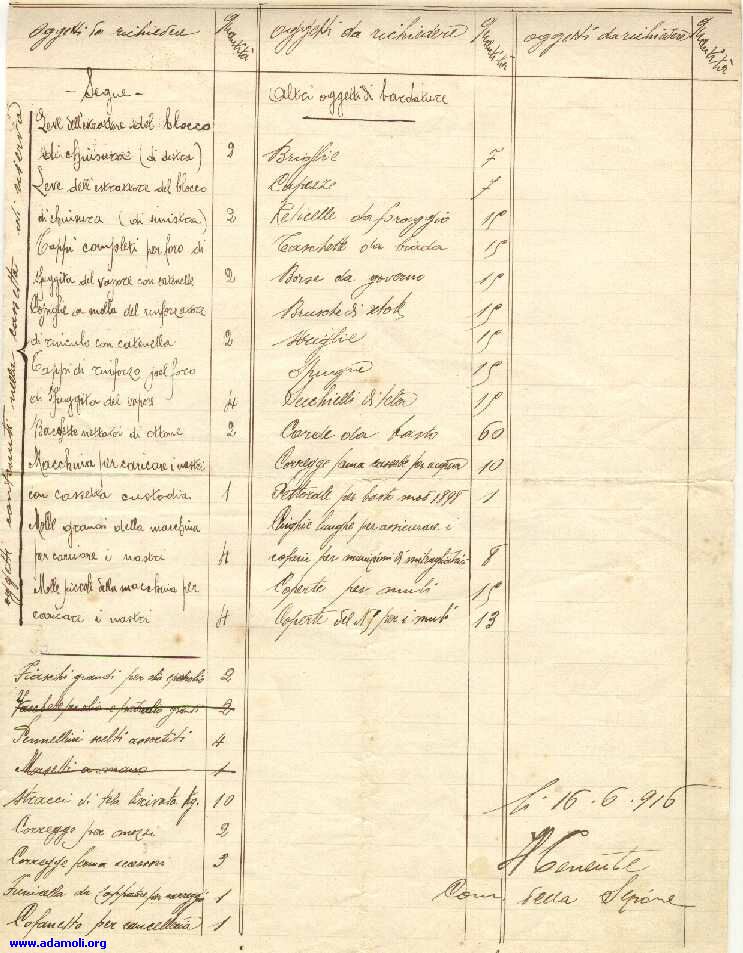 oggetti da richiedere
Quantità
- Segue -
oggetti contenuti nella cassetta di riserva
Leve dell'estrattore del blocco
di chiusura (di destra) 2
Leve dell'estrattore del blocco
di chiusura (di sinistra) 2
Tappi completi per foro di
fuggita del vapore con catenelle 2
a molla del rinforzatore
di rinculo con catenella 2
Tappi di rinforzo pel foro
di fuggita del vapore 4
Bacchette nettatoi di ottone 2
Macchina per caricare i nastri
con cassetta custodia 1
Molle grandi della macchina
per caricare i nastri 4
Molle piccole della macchina per
caricare i nastri 4
Fiaschi grandi per olio petrolio 2
2
Pennellini scelti assortiti 4
Morsetti a mano 1
Stracci di tela lisivata Kg. 10
Corregge per mozzi 2
Corregge ferma 3
Funicella da per 1
Cofanetto per cancelleria 1
oggetti da richiedere
Quantità
Altri oggetti di bardature
Briglie 7
Capezze 7
Reticelle da foraggio 15
Taschette da biada 15
Borse da governo 15
Brusche di 15
Striglie 15
Spugne 15
Secchielli di tela 15
Corde da basto 60
Corregge ferma cassette per acqua 10
Pettorale per basto mod 1898 1
Cinghie lunghe per assicurare i
cofani per munizioni di mitragliatrici 8
Coperte per muli 15
Coperte del per i muli 13
oggetti da richiedere
Quantità
li 16.6.916
Il Tenente
Com. della Sezione
www.adamoli.org